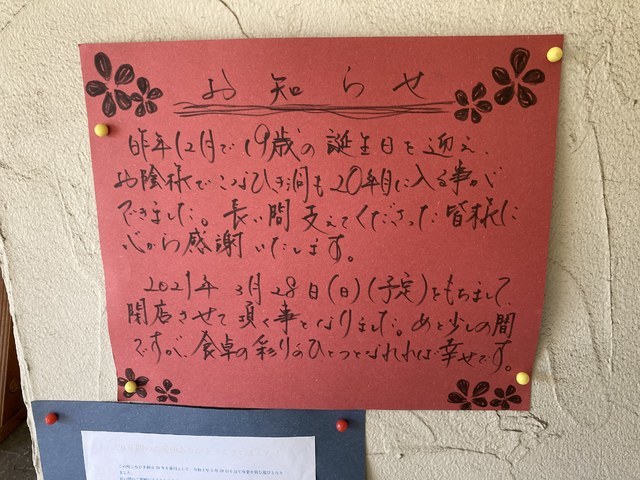 お知らせ
昨年12月で19歳の誕生日を迎え、
お陰様でこなひき洞も20年目に入る事が
できました。長い間支えてくださった皆様に
心から感謝いたします。
2021年 3月28日(日)(予定)をもちまして、
閉店させて頂く事となりました。あと少しの間
ですが、食卓の彩りのひとつとなれれば幸せです。